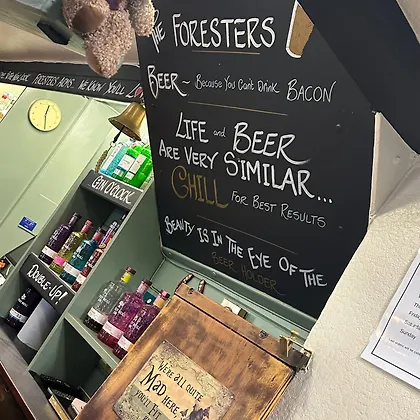 THE FORESTERS
BEER~ BECAUSE YOU CAN'T DRINK BACON
LIFE and BEER
ARE VERY SIMILAR...
CHILL FOR BEST RESULTS
BEAUTY IS IN THE EYE OF THE
BEER HOLDER
FORESTERS ARMS. WE KNOW YOU'LL
GIN O'CLOCK
DOUBLE UP!
WE'RE ALL QUITE
MAD HERE,
YOU'LL FIT
Sunday